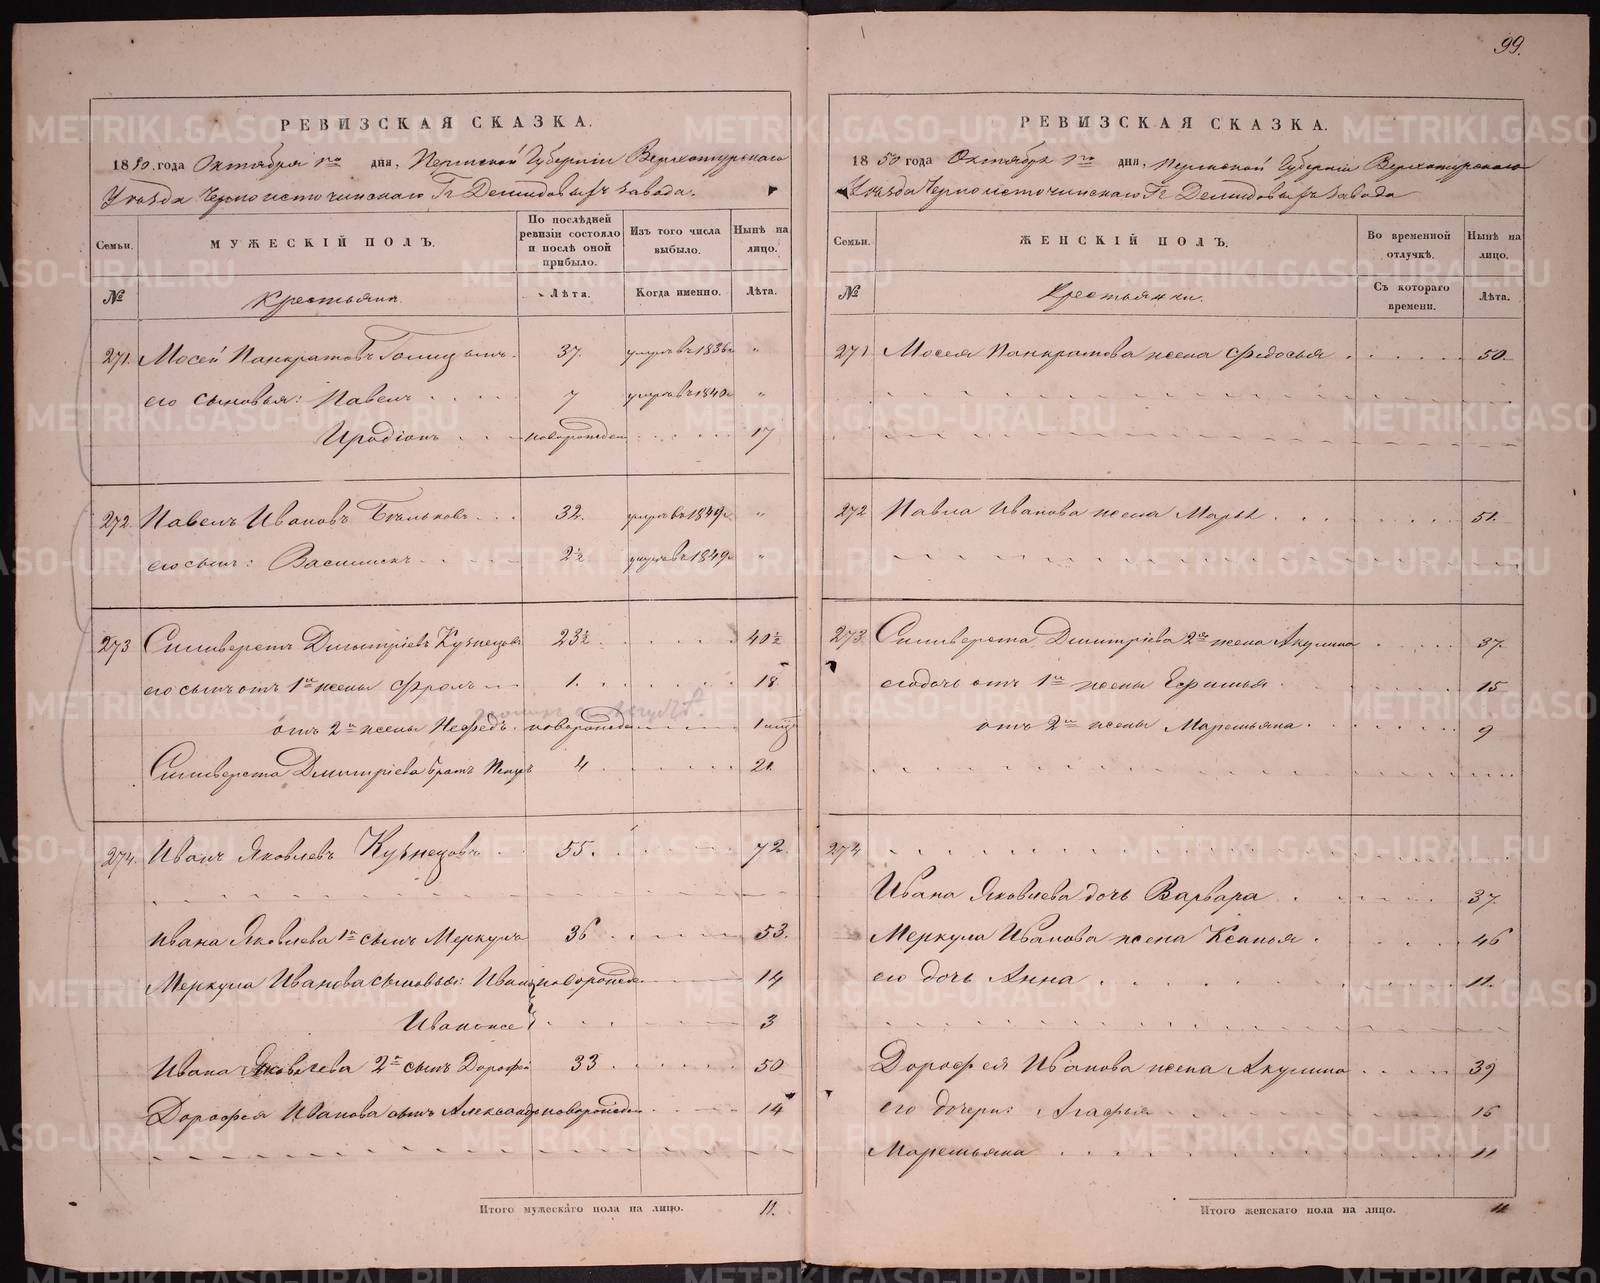 99.
РЕВИЗСКАЯ СКАЗКА.
1850 года Октября 1го дня, Пермской Губернии Верхотурского
Уезда Черноисточинскаго Гг Демидовыхъ завода.
Семьи.
МУЖЕСКІЙ ПОЛЪ.
По послѣдней ревизіи состояло и послѣ оной прибыло.
Изъ того числа выбыло.
Нынѣ на лицо.
№
Крестьяне.
Лѣта.
Когда именно.
Лѣта.
271. Мосей Панкратовъ 37. умеръ въ 1836 г „
его сыновья: Павелъ 7 умеръ въ 1840 г „
Иродіонъ новорожден 17
272. Павелъ Ивановъ Бѣльковъ 32. умеръ въ 1849 г „
его сынъ: Василискъ 2½ умеръ въ 1849 г „
273 Сильверстъ Дмитріевъ Кузнецовъ 23½ 40½
его сынъ отъ 1й жены Фролъ 1. 18
отъ 2й жены Нефедъ новорожден 1 мѣс
Сильверста Дмитріева братъ 4 21
274. Иванъ Яковлевъ Кузнецовъ 55. 72
Ивана Яковлева 1й сынъ Меркулъ 36 53.
Меркула Иванова сыновья: Иванъ новорожден 14
Иванъ же 3
Ивана Яковлева 2й сынъ Дорофей 33 50
Дорофея Иванова сынъ Александръ новорожден 14
Итого мужескаго пола на лицо. 11.
РЕВИЗСКАЯ СКАЗКА.
1850 года Октября 1го дня, Пермской Губерніи Верхотурскаго
Уезда Черноисточинскаго Гг Демидовыхъ завода
Семьи.
ЖЕНСКІЙ ПОЛЪ.
Во временной отлучкѣ.
Нынѣ на лицо.
№
Крестьянки.
Съ котораго времени.
Лѣта.
271 Мосея Панкратова жена Федосья 50.
272 Павла Иванова жена Марья 51.
273. Сильверста Дмитріева 2я жена Акулина 37.
его дочь отъ 1й жены 15
отъ 2й жены Маремьяна 9
274
Ивана Яковлева дочь Варвара 37.
Меркула Иванова жена Ксенья 46
его дочь Анна 11.
Дорофея Иванова жена Акулина 39
его дочери: Агафья 16
Маремьяна 11
Итого женскаго пола на лицо. 11
METRIKI.GASO-URAL.RU